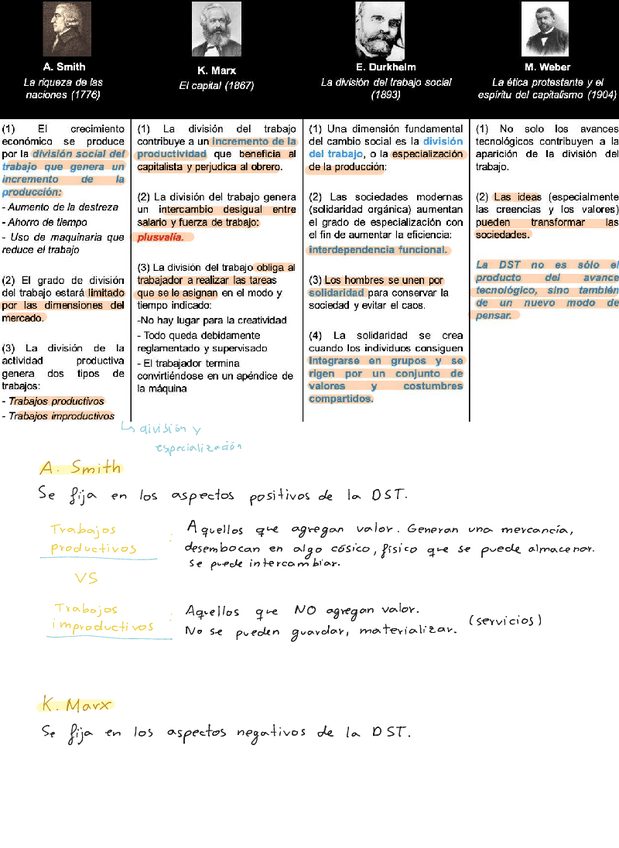 A. Smith
La riqueza de las
naciones (1776)
K. Marx
El capital (1867)
E. Durkheim
La división del trabajo social
(1893)
M. Weber
La ética protestante y el
espíritu del capitalismo (1904)
(1) El crecimiento
económico se produce
por la división social del
trabajo que genera un
incremento de la
producción:
- Aumento de la destreza
- Ahorro de tiempo
- Uso de maquinaria que
reduce el trabajo
(2) El grado de división
del trabajo estará limitado
por las dimensiones del
mercado.
(3) La división de la
actividad productiva
genera dos tipos de
trabajos:
- Trabajos productivos
- Trabajos improductivos
(1) La división del trabajo
contribuye a un incremento de la
productividad que beneficia al
capitalista y perjudica al obrero.
(2) La división del trabajo genera
un intercambio desigual entre
salario y fuerza de trabajo:
plusvalía.
(3) La división del trabajo obliga al
trabajador a realizar las tareas
que se le asignan en el modo y
tiempo indicado:
-No hay lugar para la creatividad
- Todo queda debidamente
reglamentado y supervisado
- El trabajador termina
convirtiéndose en un apéndice de
la máquina
(1) Una dimensión fundamental
del cambio social es la división
del trabajo, o la especialización
de la producción:
(2) Las sociedades modernas
(solidaridad orgánica) aumentan
el grado de especialización con
el fin de aumentar la eficiencia:
interdependencia funcional.
(3) Los hombres se unen por
solidaridad para conservar la
sociedad y evitar el caos.
(4) La solidaridad se crea
cuando los individuos consiguen
integrarse en grupos y se
rigen por un conjunto de
valores y costumbres
compartidos.
(1) No solo los avances
tecnológicos contribuyen a la
aparición de la división del
trabajo.
(2) Las ideas (especialmente
las creencias y los valores)
pueden transformar las
sociedades.
La DST no es sólo el
producto del avance
tecnológico, sino también
de un nuevo modo de
pensar.
división y
especialización
A. Smith
Se fija en los aspectos positivos de la DST.
Trabajos
productivos
: Aquellos que agregan valor. Generan una mercancía,
desembocan en algo cósico, físico que se puede almacenar.
Se puede intercambiar.
VS
Trabajos
improductivos
: Aquellos que NO agregan valor.
No se pueden guardar, materializar. (servicios)
K. Marx
Se fija en los aspectos negativos de la DST.